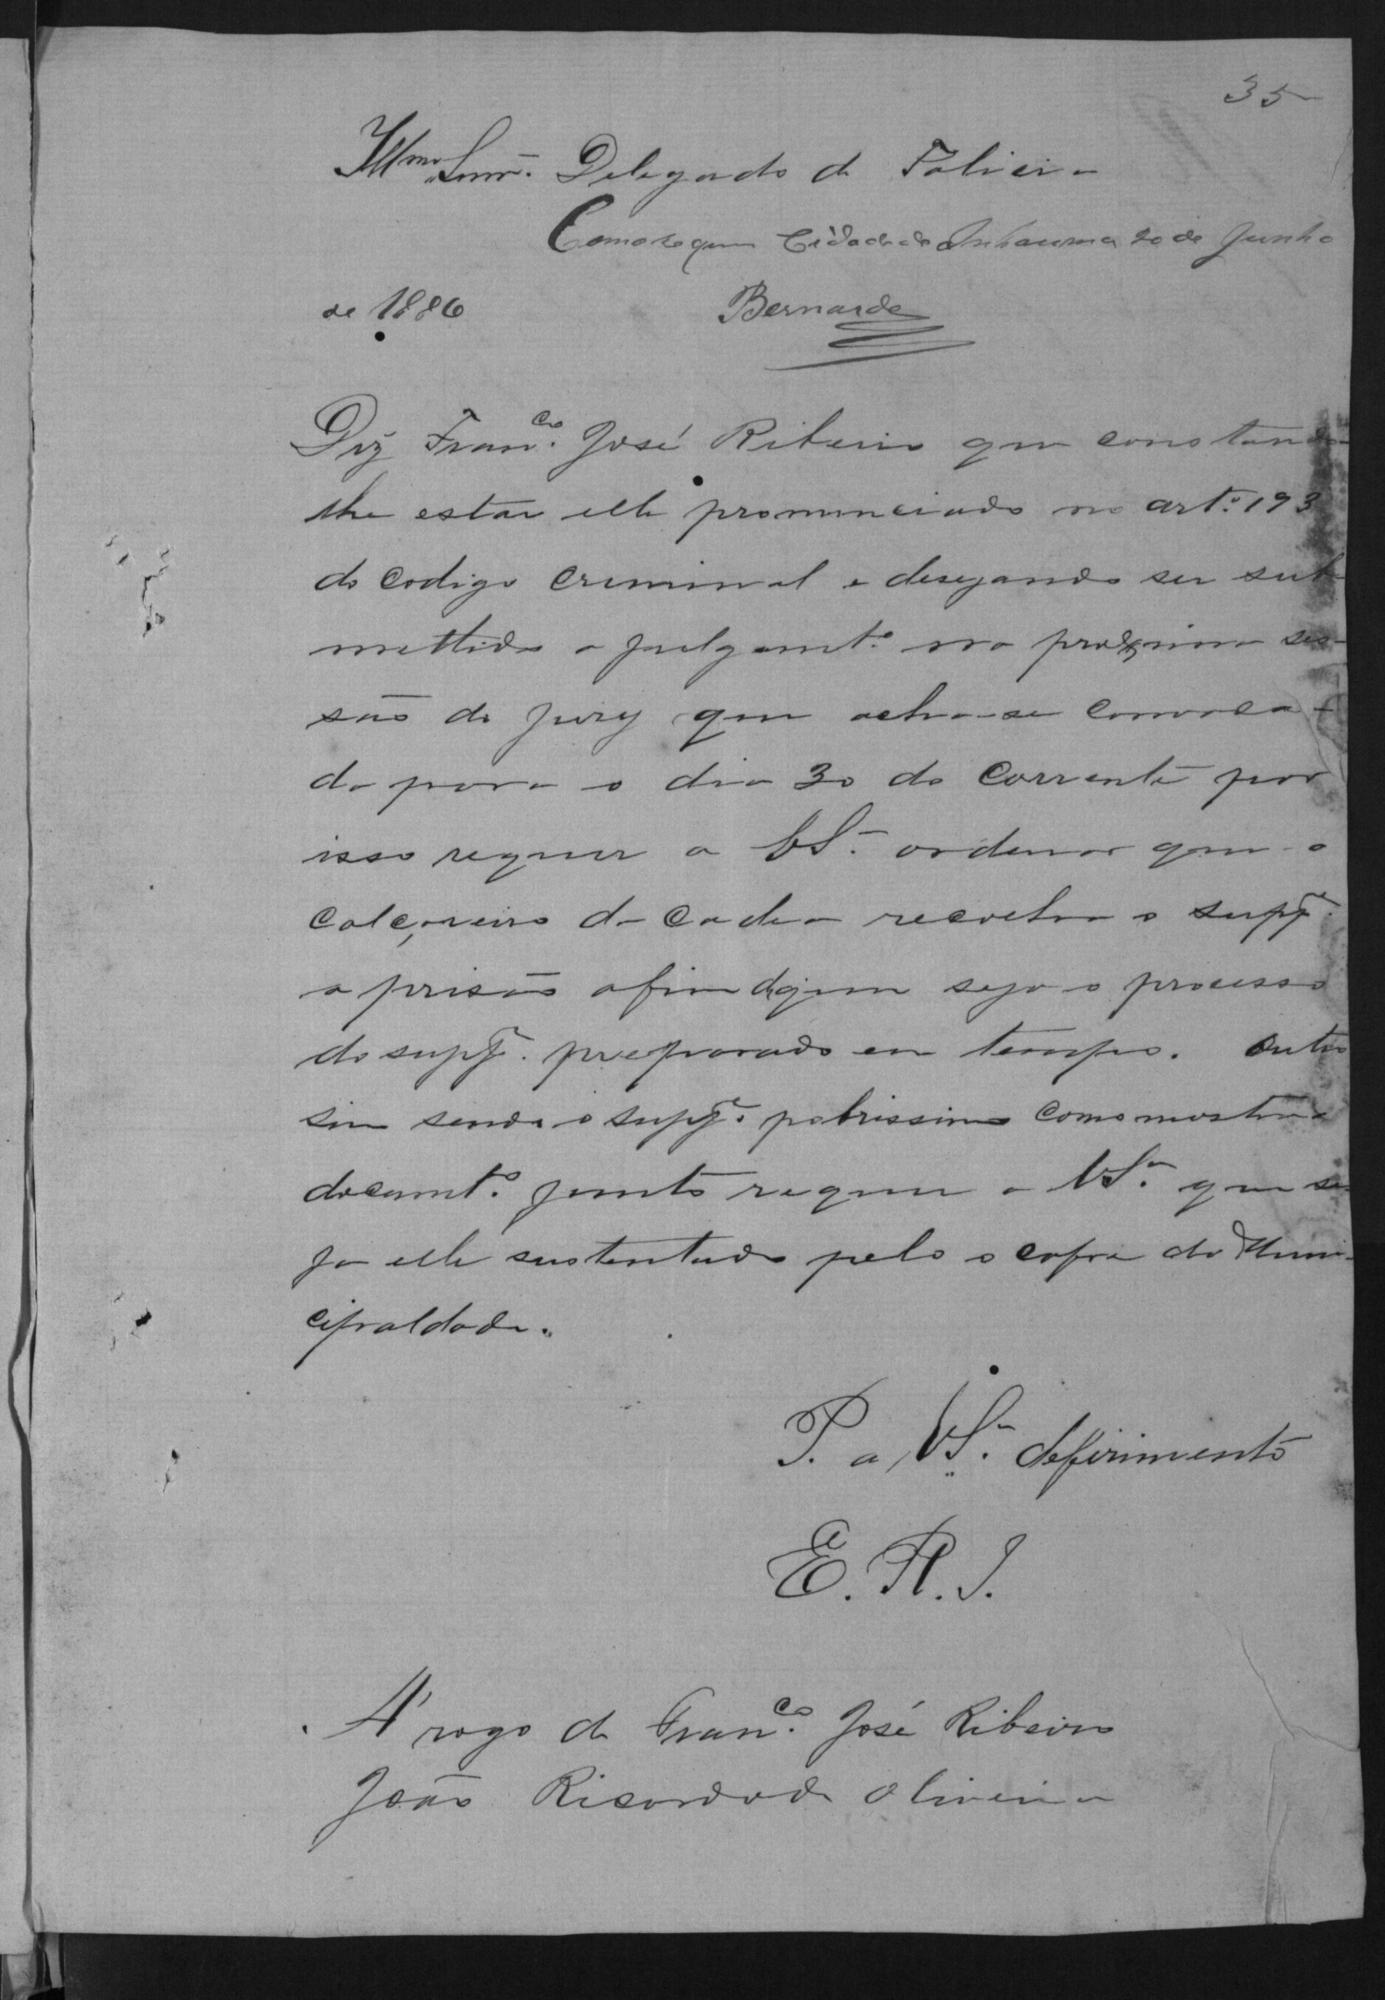 35
Illmo Snnr. Delegado de Policia
Como requer Cidade de Inhauma 20 de Junho
de 1886 Bernarde
Diz Franco. José Ribeiro que constando
lhe estar elle pronunciado no art.o 193
do codigo criminal e desejando ser sub
mettido a julgamto. na proxima ses-
são do jury que acha-se convoca-
do para o dia 30 do corrente por
isso requer a VSa. ordenar que o
calçereiro da cadea recolha o suppe.
a prisão afim de que seja o processo
do suppe. preparado em tempo. Outro
sim sendo o suppe. pobrissimo como mostra o
documto. junto requer a VSa. que se
ja elle sustentado pelo o cofre da Muni-
cipaldade.
P. a VSa. defirimento
E. R. J.
A' rogo de Franco. José Ribeiro
João Ricardo de Oliveira